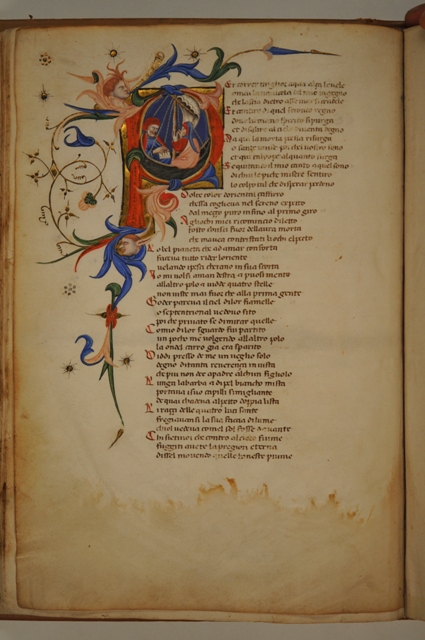 Er correr miglior aqua alça leuele
omai la nauicella del mio ingegno
che lassa dietro asse mar si crudele
E cantero di quel secondo regno
doue lumano spirito si purga
et di salire al cielo diuenta degno
Ma qui la morta poesia risurga
o sante muse poi che uostro sono
et qui caliope alquanto surga
Seguitando il mio canto con quel sono
di chui le piche misere sentiro
lo colpo tal che disperar perdono
Dolce color doriental çaffiro
chessa coglieua nel sereno aspeto
dal meço puro infino al primo giro
Agliochi miei ricomincio diletto
tosto chusci fuor dellaura morta
che mauea contristati liochi elpecto
Lo bel pianeta che ad amar conforta
faceua tutto rider loriente
uelando ipesci cherano in sua scorta
Io mi uolsi aman destra et puosi mente
allaltro polo et uide quatro stelle
non uiste mai fuor che alla prima gente
Goder pareua il ciel di lor fiamelle
o septentrional uedouo sito
poi che priuato se di mirar quelle
Como dilor sguardo fui partito
un pocho me uolgendo allaltro polo
la onde il carro gia era sparito
Uiddi presso de me un ueglio solo
degno di tanta reuerenza in uista
che piu non dee apadre alchun figliolo
Lunga la barba et di pel biancho mista
portaua isuo capilli simigliante
de quai chadeua alpecto doppia lista
Li raggi delle quatro luci sante
fregiauan si la sua faccia di lume
chio luedeua come il sol fosse dauante
Chi siete uoi che contro al cieco fiume
fuggiti auete la pregion eterna
dissel mouendo quelle honeste piume